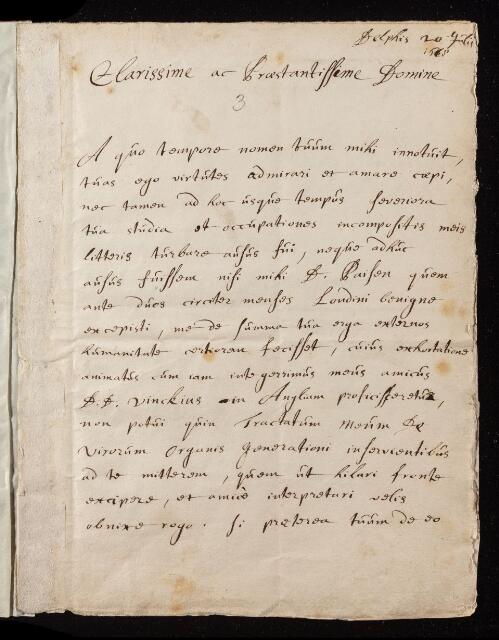 Delphis 20 Julii
1668
Clarissime ac Præstantissime Domine
3
A quo tempore nomen tuum mihi innotuit,
tuas ego virtutes admirari et amare cœpi,
nec tamen ad hoc usque tempus severiora
tua studia et occupationes incompositis meis
litteris turbare ausus fui, neque adhuc
ausus fuissem nisi mihi D. Paisen quem
ante duos circiter menses Londini benigne
excepisti, me de summa tua erga externos
humanitate certiorem fecisset, cuius exhortatione
animatus cum iam integerrimus meus amicus
D.D. Vinckius in Angliam proficisceretur,
non potui quin Tractatum meum De
Virorum Organis Generationi inservientibus
ad te mitterem, quem ut hilari fronte
excipere, et amice interpretari velis
obnixe rogo. Si præterea tuum de eo